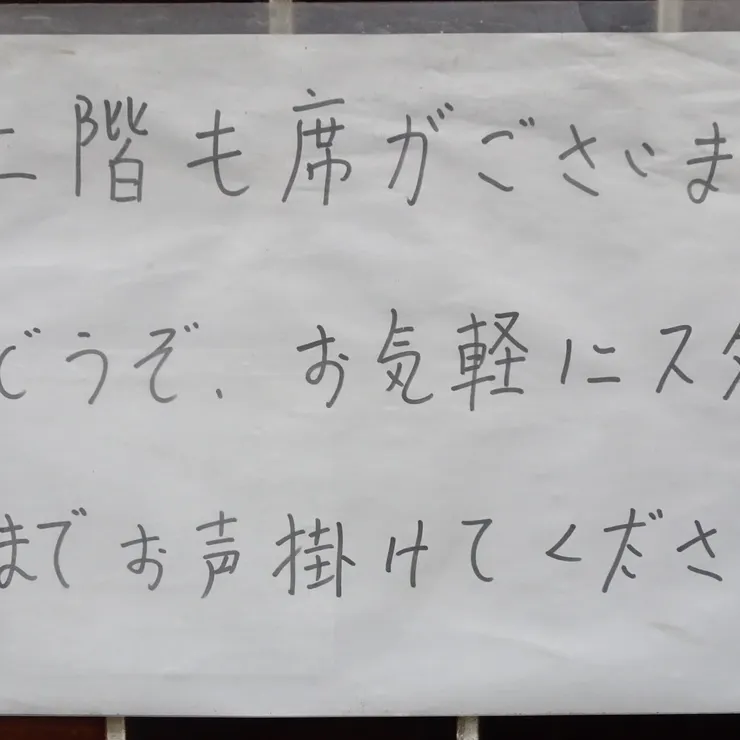 二階も席がございま
どうぞ、お気軽にスタ
までお声掛けてくださ